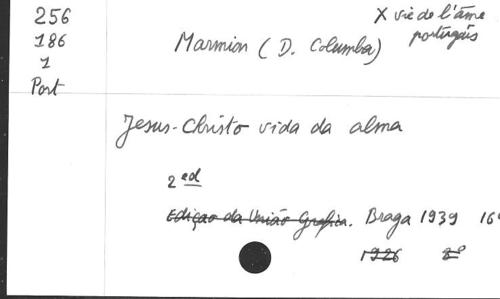 256
X vie de l'âme
186
Marmion (D. Columba)
portugais
1
Port
Jesus-Christo vida da alma
2 ed
Ediçao da União Grafica. Braga 1939 16°
1926 8°